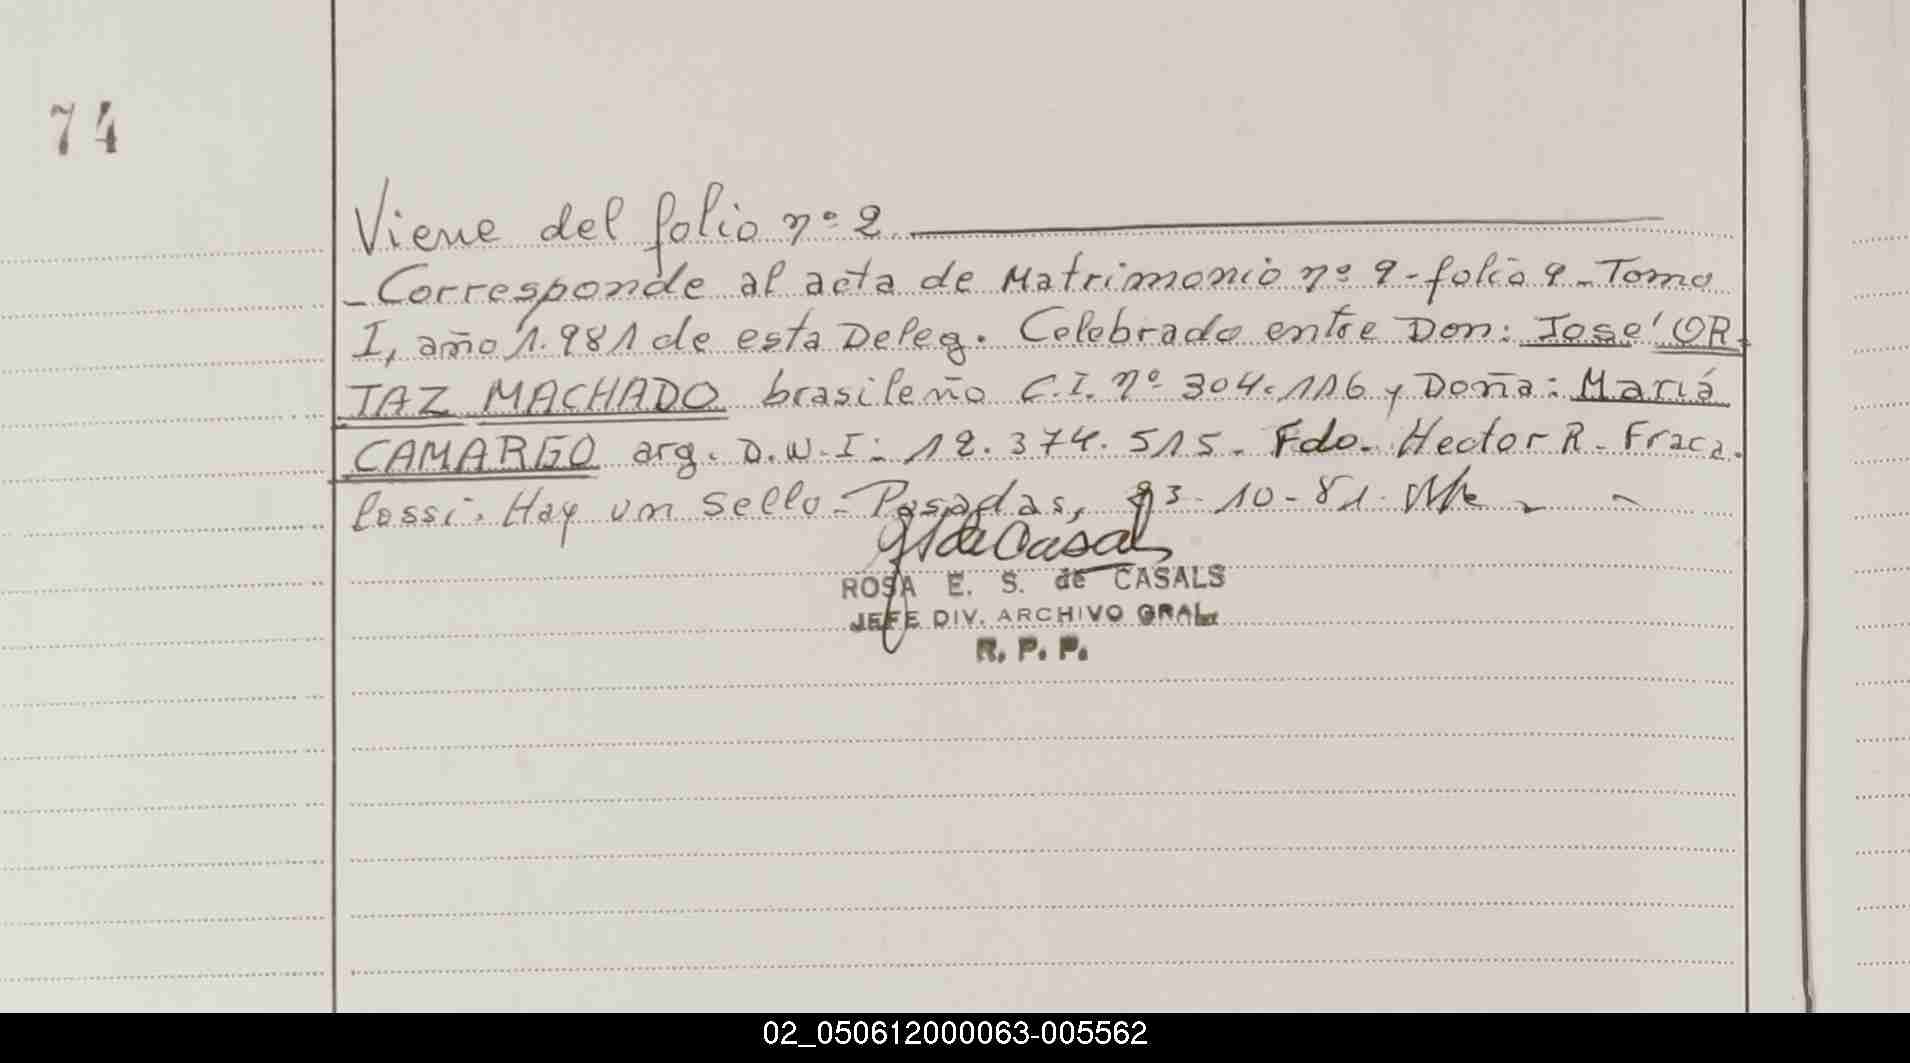 74
Viene del folio nº 2
- Corresponde al acta de Matrimonio nº 9 - folio 9 - Tomo
I, año 1.981 de esta Deleg. Celebrado entre Don: José OR-
TAZ MACHADO brasileño C.I. nº 304.116 y Doña: Mariá
CAMARGO arg. D.N.I: 12.374.515. Fdo. Hector R. Fraca-
lossi. Hay un sello - Posadas, 23-10-81.
ROSA E. S. de CASALS
JEFE DIV. ARCHIVO GRAL.
R. P. P.
02_050612000063-005562